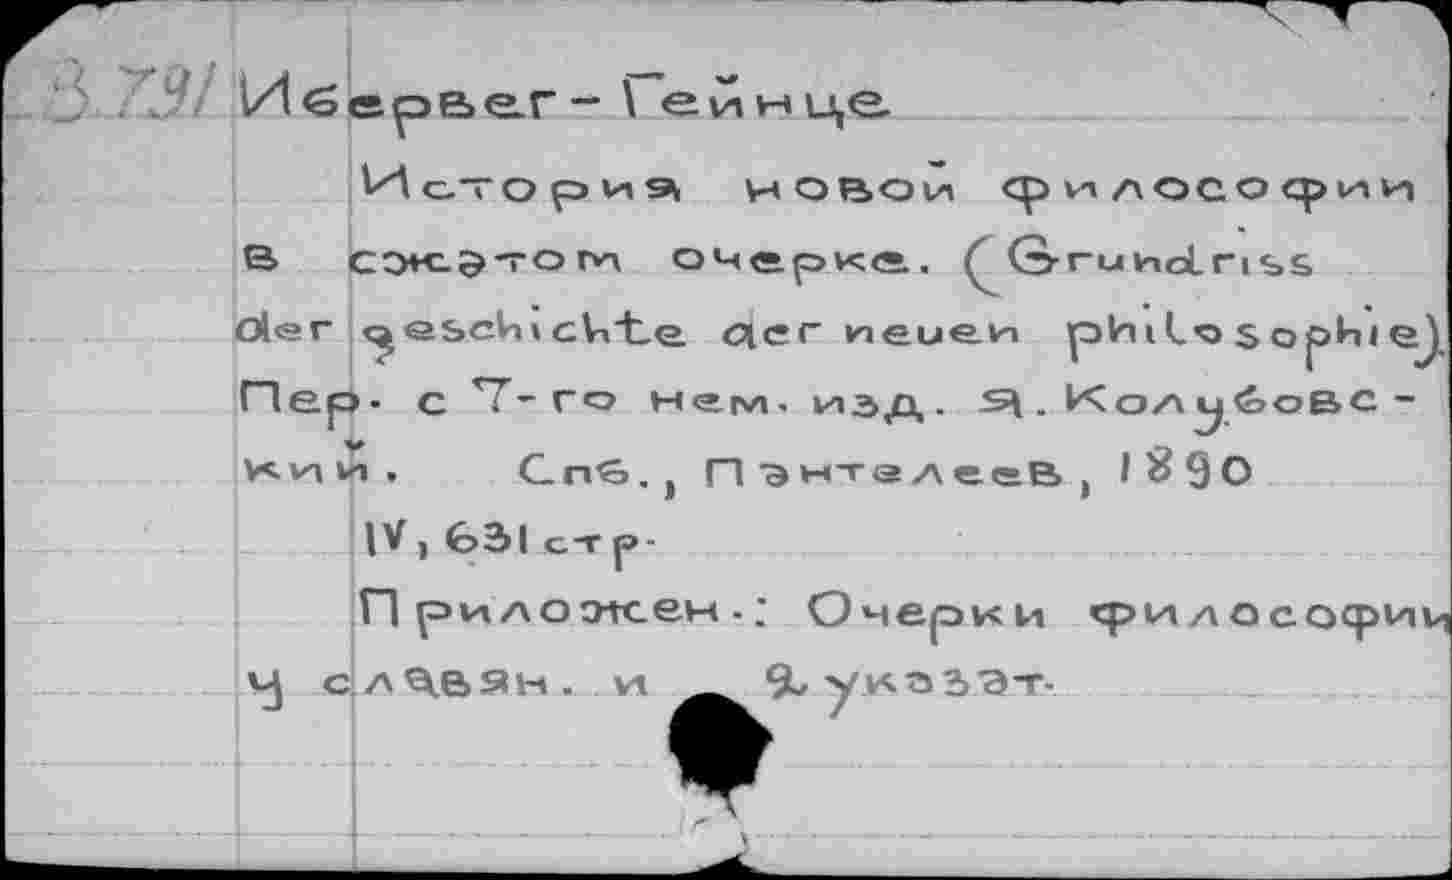 3.791 Ибервег - Гейнце
История новой философии
в сжатом очерке. (Grundriss
der geschichte der neuen philosophie).
Пер. с 7-го нем. изд. Я. Колубовс-
кий. Спб., Пантелеев, 1890
IV, 631 стр.
Приложен.: Очерки философии
у славян. и 2 указат.